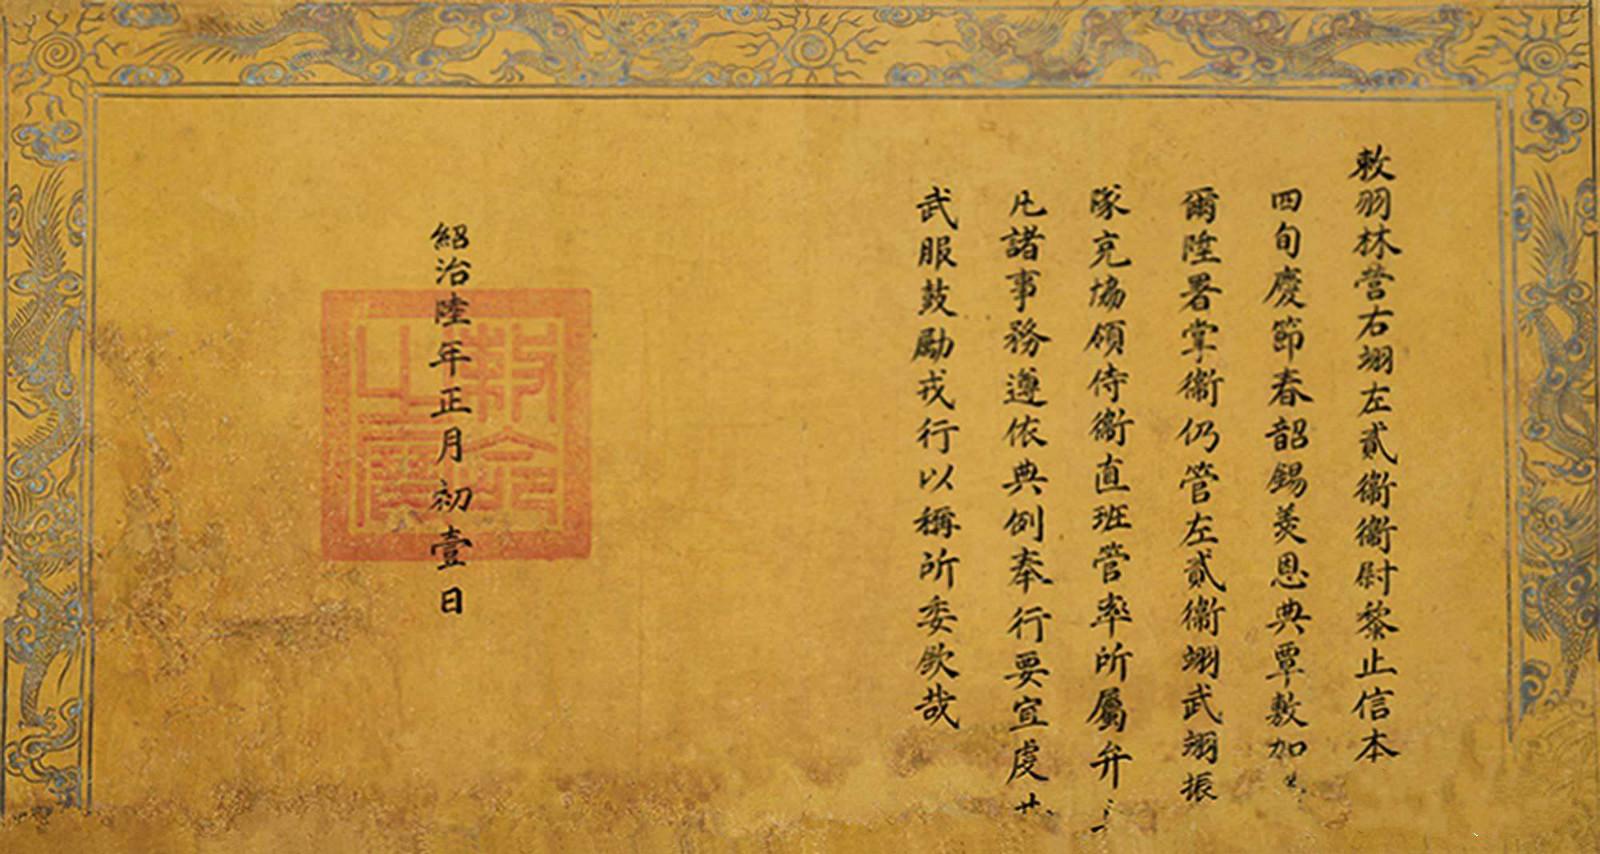 敕羽林营右翊左貳衞衞尉黎止信本
四旬慶節春韶錫羙恩典覃敷加
爾陞署掌衞仍管左貳衞翊武翊振
隊充協領侍衞直班管率所屬弁
凡諸事務遵依典例奉行要宜虔
武服鼓勵戎行以稱所委欽哉
紹治陸年正月初壹日
敕命
之寶